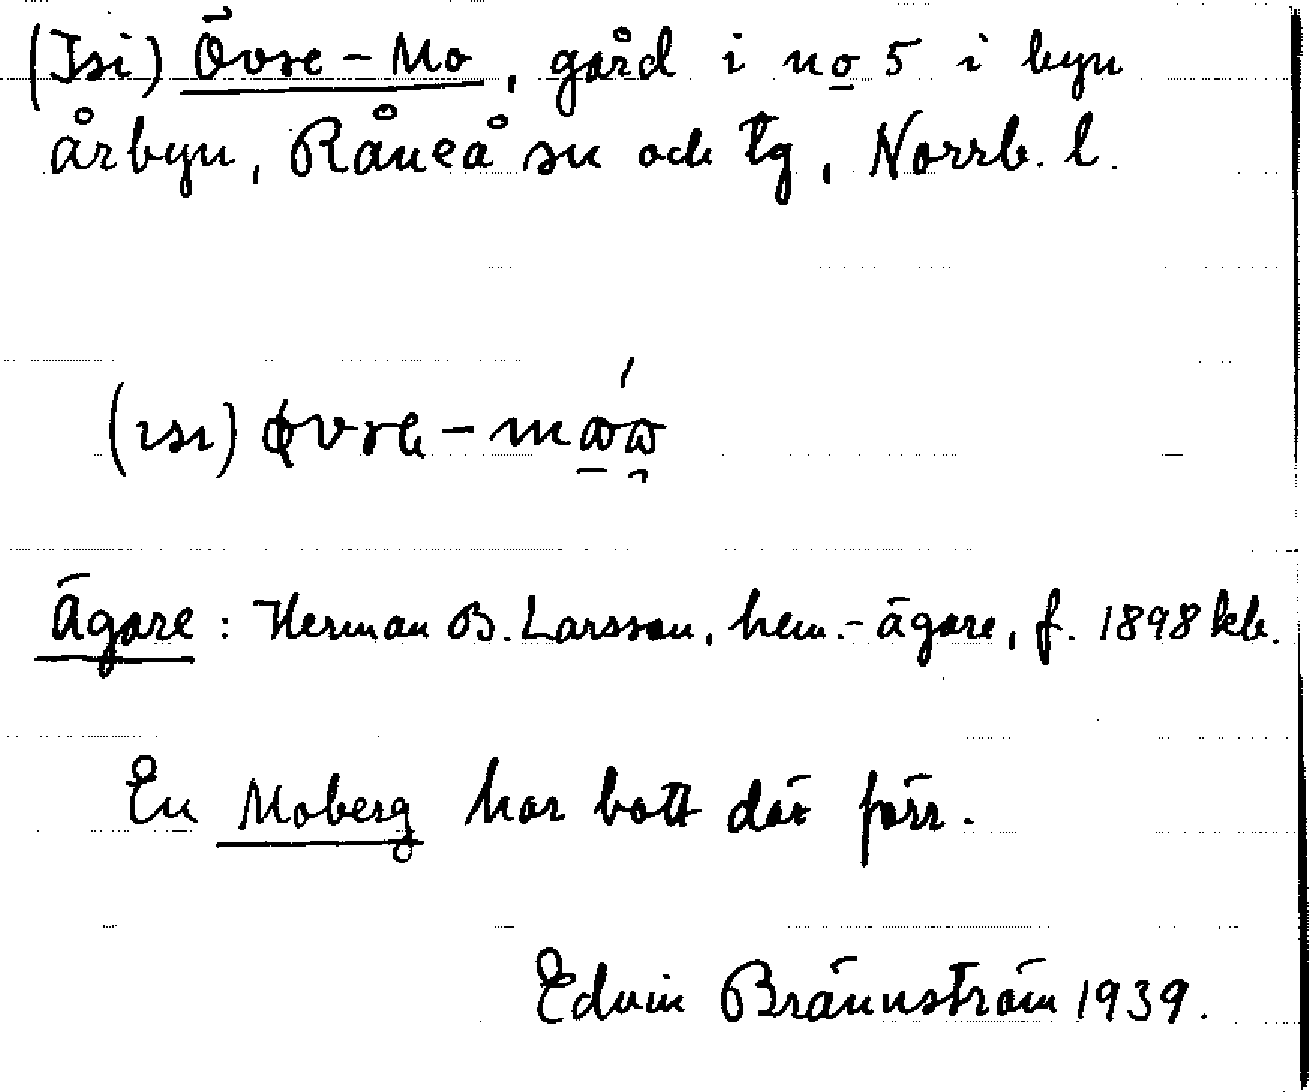 (Isi) Övre-Mo, gård i no 5 i byn
Årbyn, Råneå sn och tg, Norrb. l.
(ısı)
Ägare: Herman B. Larsson, hem.-ägare, f. 1898 kb.
En Moberg har bott där förr.
Edvin Brännström 1939.